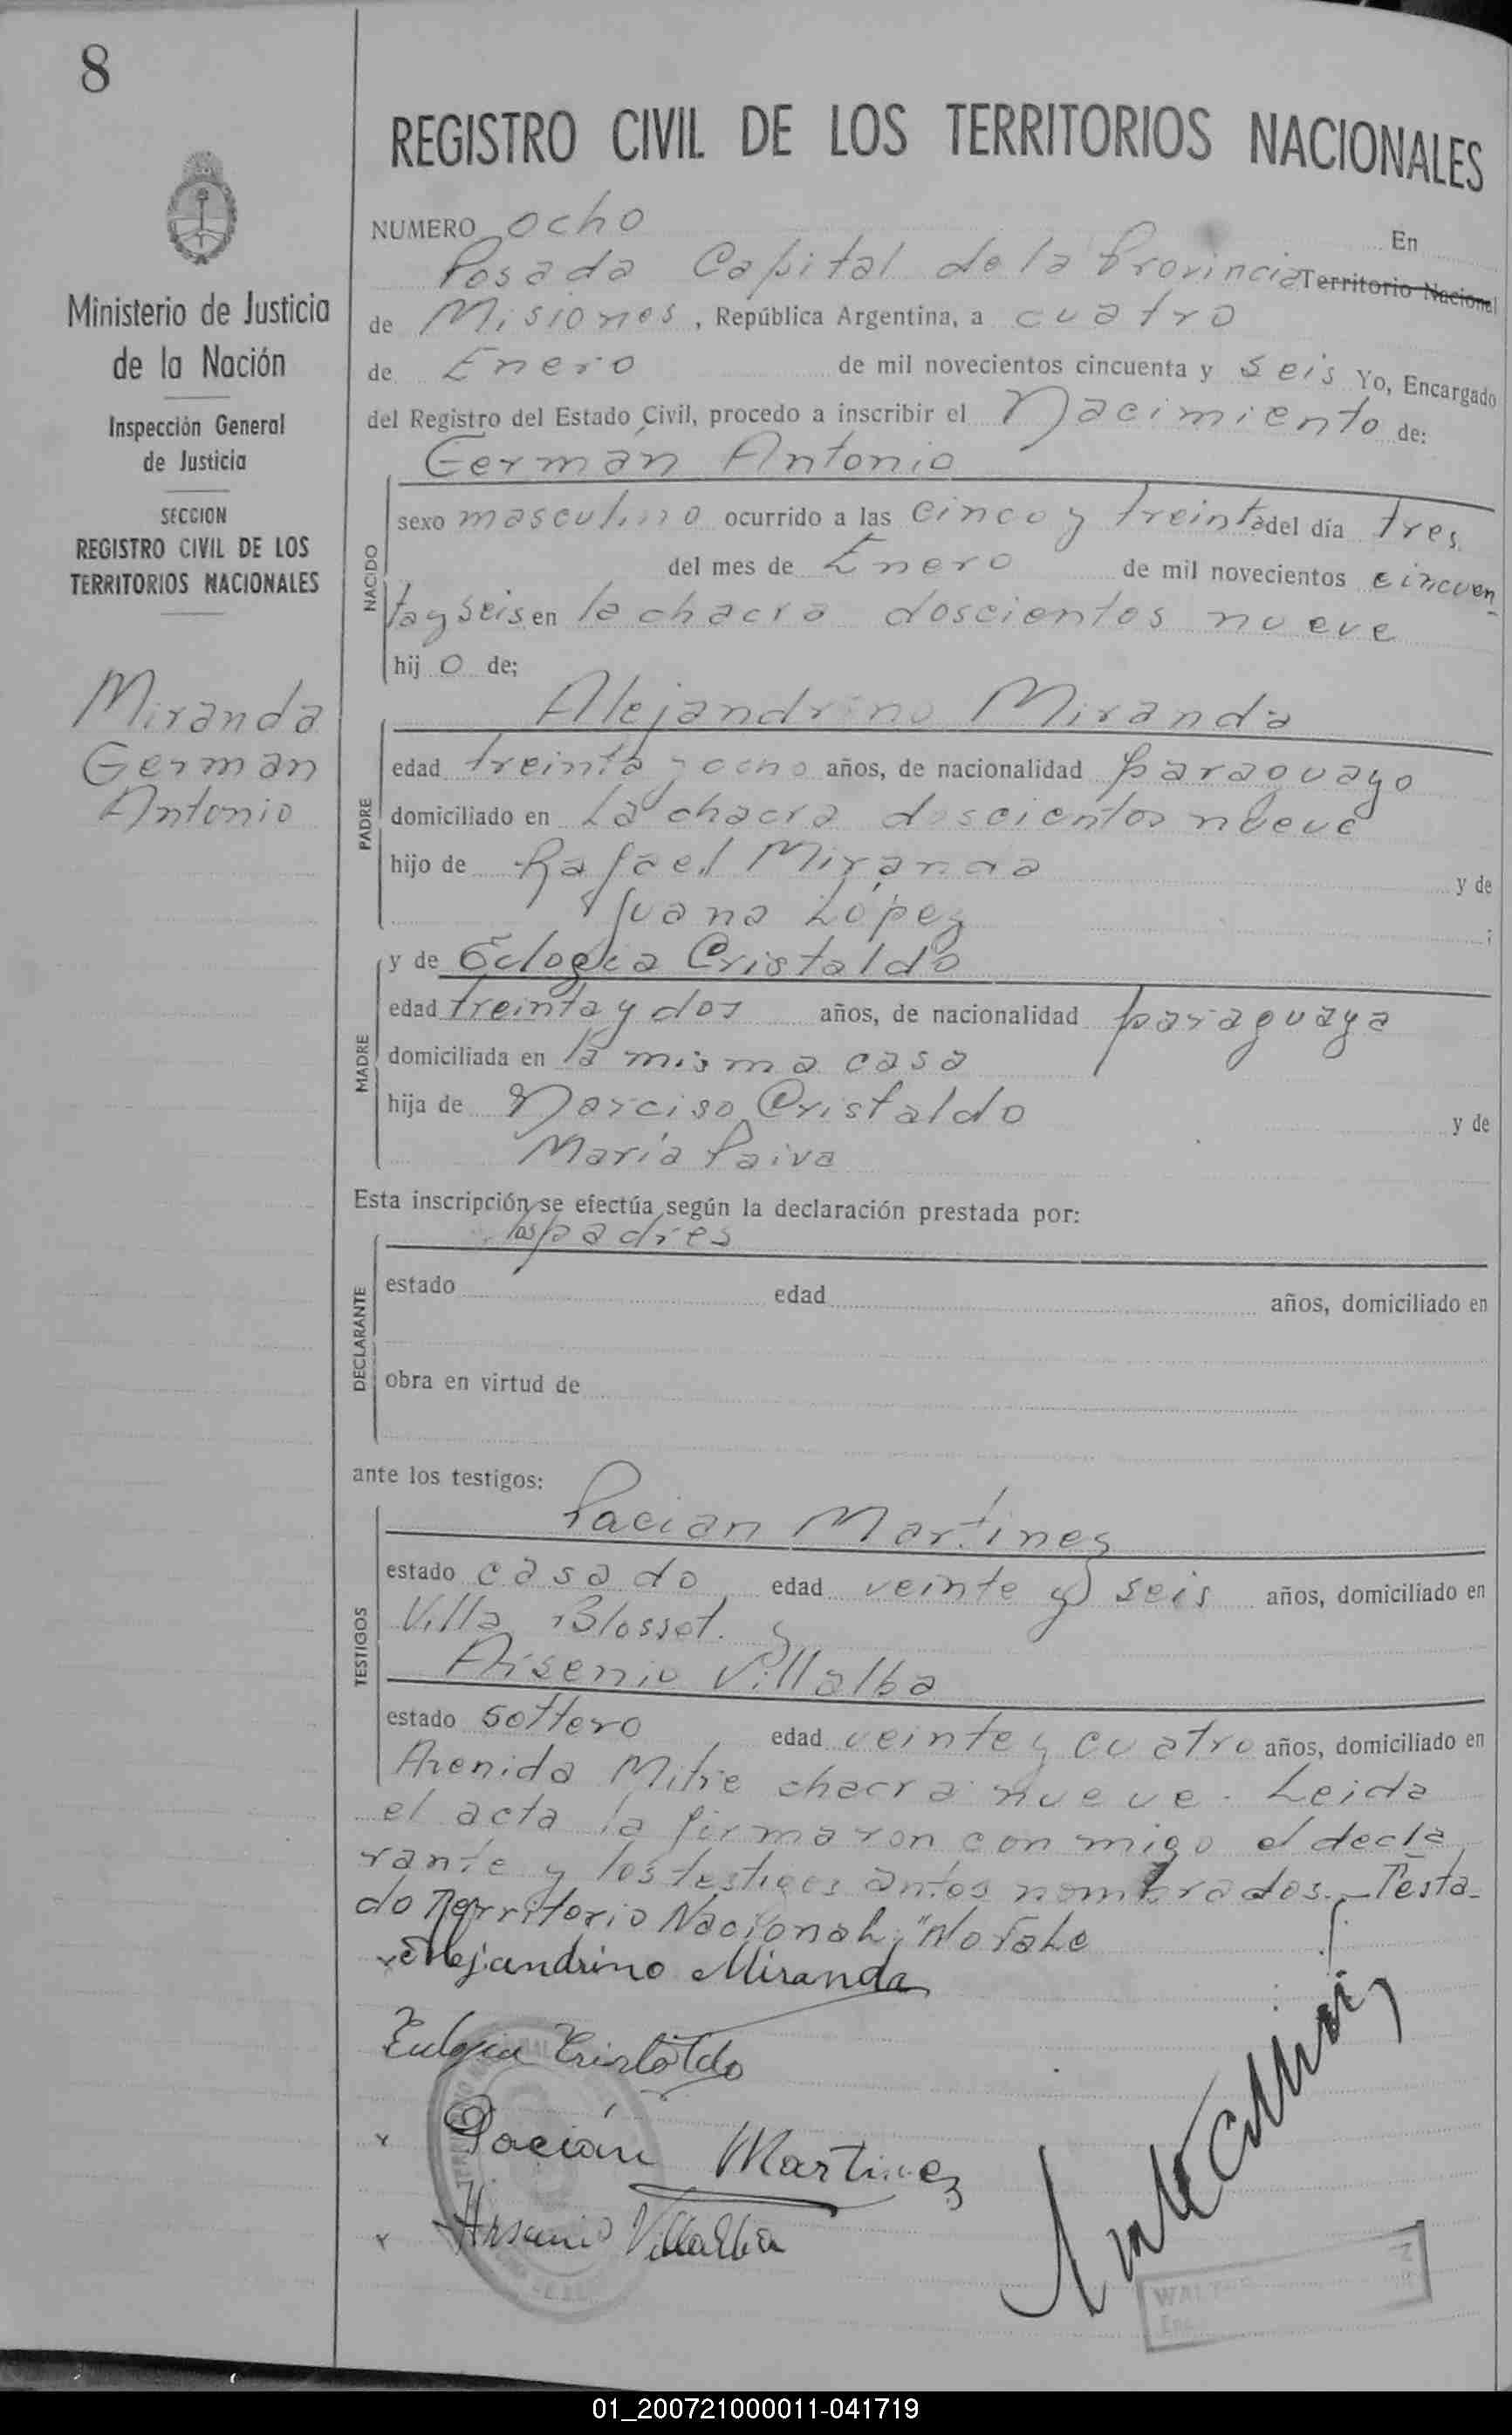 8
REGISTRO CIVIL DE LOS TERRITORIOS NACIONALES
Ministerio de Justicia
de la Nación
Inspección General
de Justicia
SECCION
REGISTRO CIVIL DE LOS
TERRITORIOS NACIONALES
Miranda
German
Antonio
NUMERO ocho En
Posada Capital de la Provincia Territorio Nacional
de Misiones, República Argentina, a cuatro
de Enero de mil novecientos cincuenta y seis Yo, Encargado
del Registro del Estado Civil, procedo a inscribir el Nacimiento de:
German Antonio
NACIDO
sexo masculino ocurrido a las cinco y treinta del día tres
del mes de Enero de mil novecientos cincuen
ta y seis en la chacra doscientos nueve
hijo de;
Alejandrino Miranda
PADRE
edad treinta y ocho años, de nacionalidad paraguayo
domiciliado en La chacra doscientos nueve
hijo de Rafael Miranda y de
Juana López ;
MADRE
y de Cristaldo
edad treinta y dos años, de nacionalidad paraguaya
domiciliada en la misma casa
hija de Narciso Cristaldo y de
María Paiva
Esta inscripción se efectúa según la declaración prestada por:
los padres
DECLARANTE
estado edad años, domiciliado en
obra en virtud de
ante los testigos:
Pacian Martinez
TESTIGOS
estado casado edad veinte y seis años, domiciliado en
Villa Blosset. y
Arsenio Villalba
estado soltero edad veinte y cuatro años, domiciliado en
Avenida Mitre chacra nueve. Leida
el acta la firmaron con migo el decla
rante y los testigos antes nombrados. Testa-
do Territorio Nacional, "No Vale
Alejandrino Miranda
Eulogia Cristaldo
Pacián Martinez
Arsenio Villalba
01_200721000011-041719